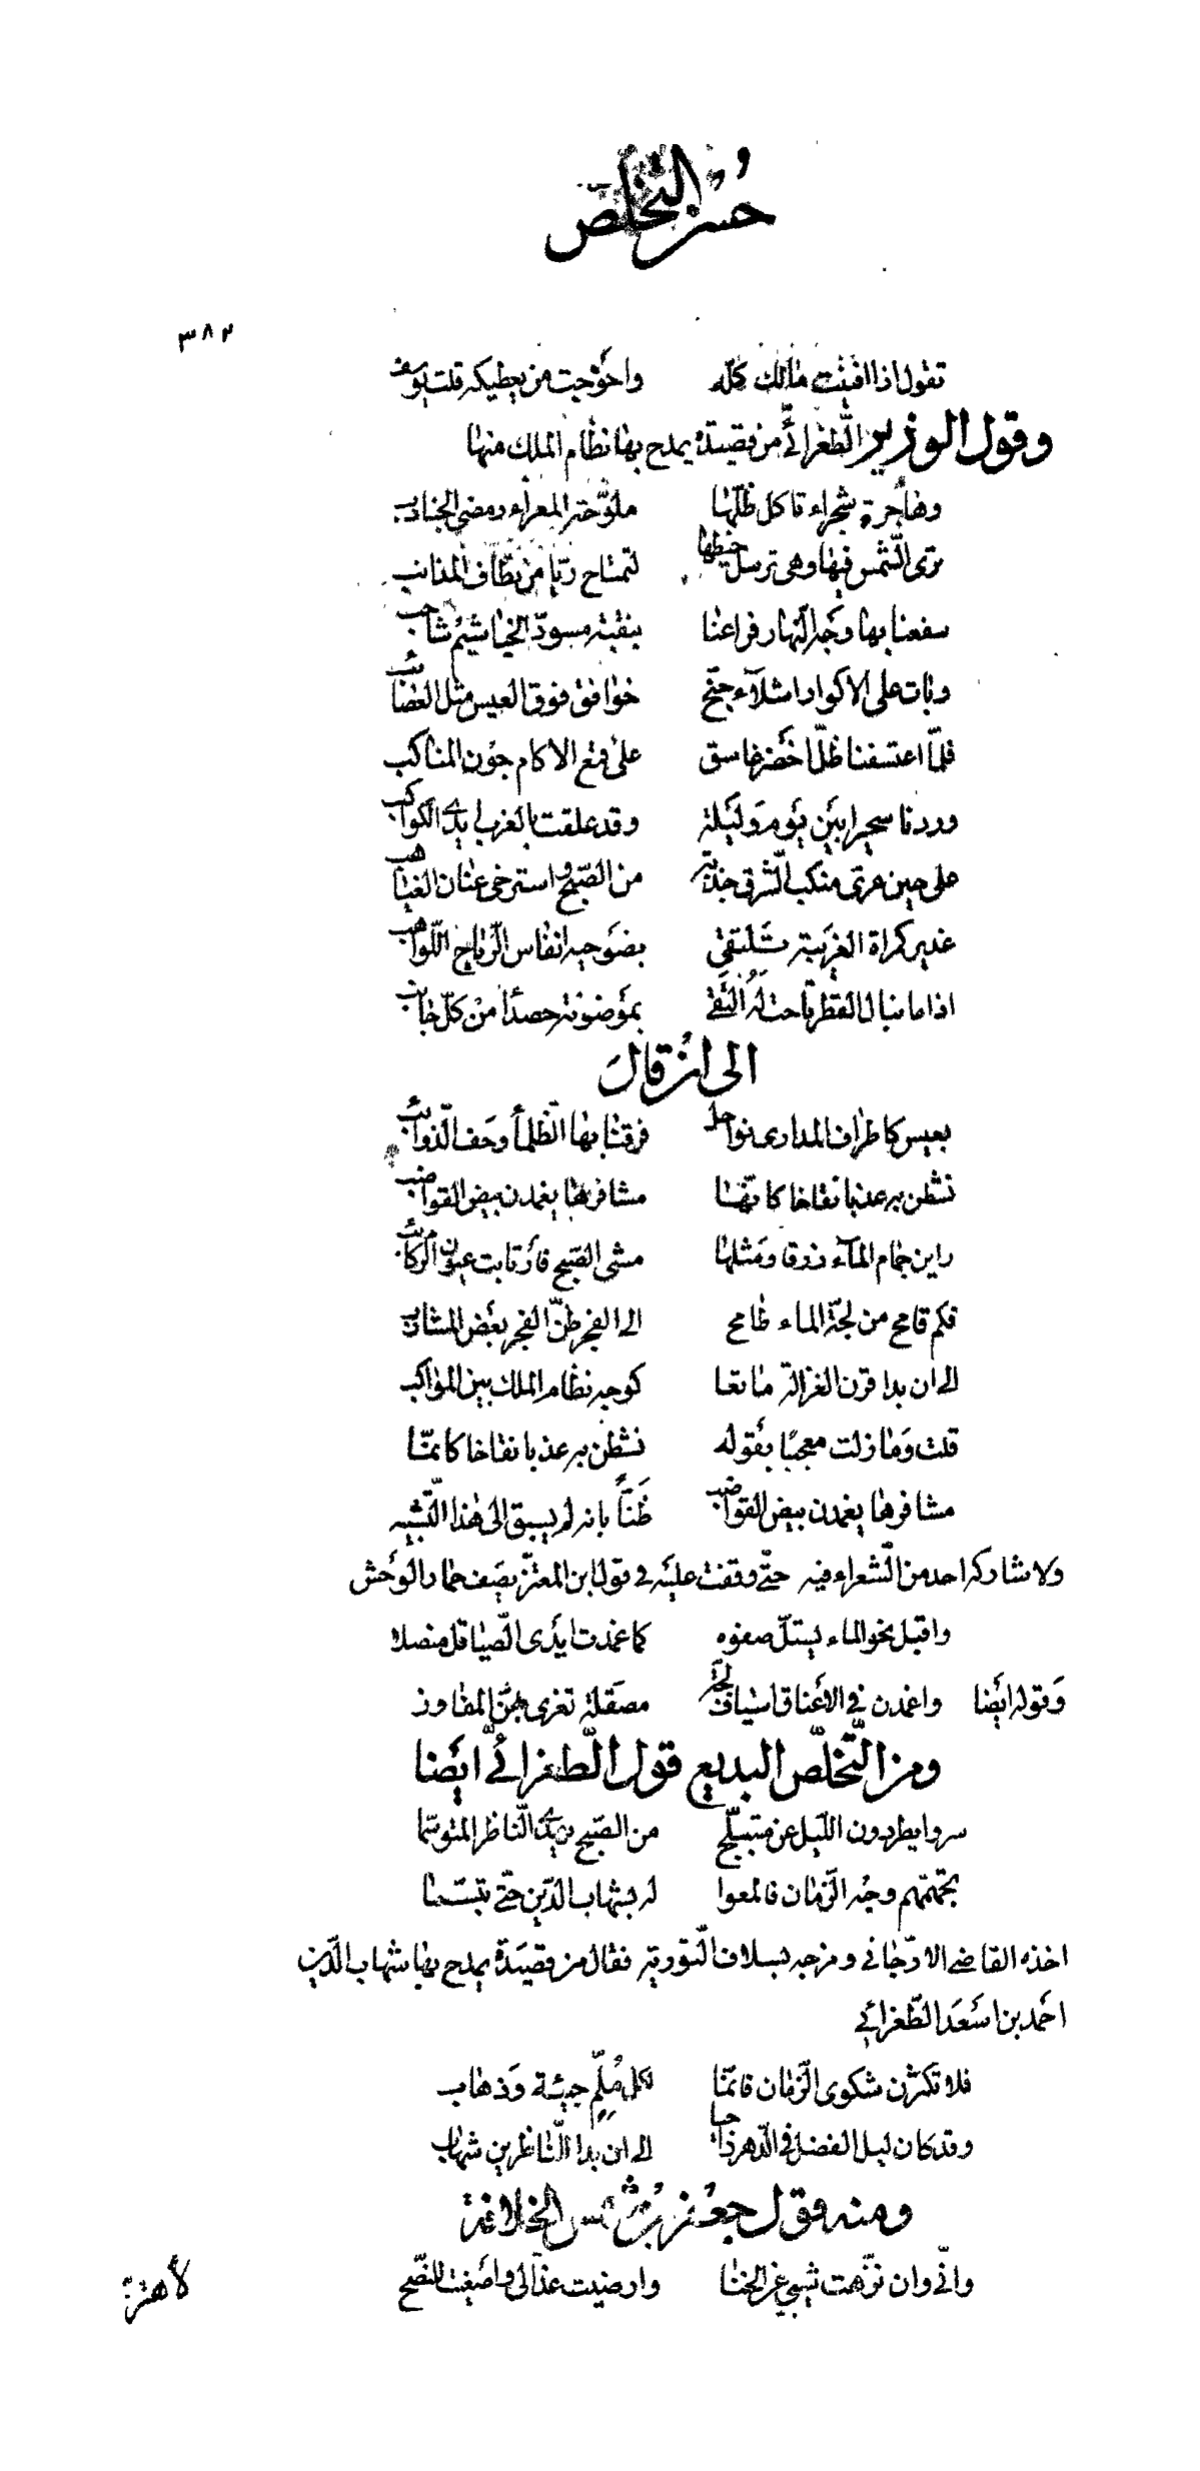 حسن التخلص
٣٨٢
تقول اذا افنيت مالك كله واحوجت من يعطيكه قلت يوسف
وقول الوزير الطغرائي من قصيدة يمدح بها نظام الملك منها
وهاجرة شجراء تاكل ظلها ملوحة المعزاء رمضى الجنادب
ترى الشمس فيها وهى ترسل خيطها لتمتاح ريا من نطاف المذانب
سفعنا بها وجه النهار فراعنا بنقبة مسود الخياشيم شاحب
وبات على الاكوار اشلاء جنح خوافق فوق العيس مثل العصائب
فلما اعتسفنا ظل اخضر غاسق على قمع الاكام جون المناكب
وردنا سحيرا بين يوم وليلة وقد علقت بالغرب ايدي الكواكب
على حين عرى منكب الشرق جذبة من الصبح واسترخى عنان الغياهب
غدير كمراة الغريبة تلتقي بضوجيه انفاس الرياح اللواهب
اذا ما نبال القطر تاحت له اتقى بموضونة حصداء من كل جانب
الى ان قال
بعيس كاطراف المدارى نواحل فرقنا بها الظلماء وحف الذوائب
نشطن به عذبا نقاخا كانما مشافرها يغمدن بيض القواضب
راين جمام الماء زرقا ومثلها مشى الصبح فارتابت عيون الركائب
فكم قامح من لجة الماء طامح الى الفجر ظن الفجر بعض المشارب
الى ان بدا قرن الغزالة ماتعا كوجه نظام الملك بين المواكب
قلت وما زلت معجبا بقوله نشطن به عذبا نقاخا كانما
مشافرها يغمدن بيض القواضب ظنا بانه لم يسبق الى هذا التشبيه
ولا شاركه احد من الشعراء فيه حتى وقفت عليه في قول ابن المعتز يصف حمار الوحش
واقبل نحو الماء يستل صفوه كما غمدت ايدى الصياقل منصلا
وقوله ايضا واغمدن في الاعناق اسياف لجة مصقلة تفرى بهن المفاوز
ومن التخلص البديع قول الطغرائي ايضا
سروا يطردون الليل عن متبلج من الصبح يهدي الناظر المتوسما
تجهمهم وجه الزمان فالمعوا له بشهاب الدين حتى تبسما
اخذه القاضي الارجاني ومزجه بسلاف التورية فقال من قصيدة يمدح بها شهاب الدين
احمد بن اسعد الطغرائي
فلا تكثرن شكوى الزمان فانما لكل ملم جيئة وذهاب
وقد كان ليل الفضل في الدهر داجيا الى ان بدا للناظرين شهاب
ومنه قول جعفر بن شمس الخلافة
واني وان نزهت شيبي عن الخنا وارضيت عذالي واصغيت للنصح
لاهتز